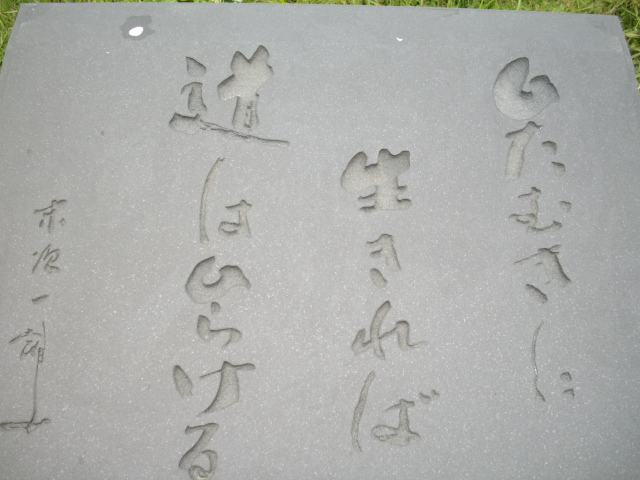 ひたむきに
生きれば
道はひらける
末次一郎